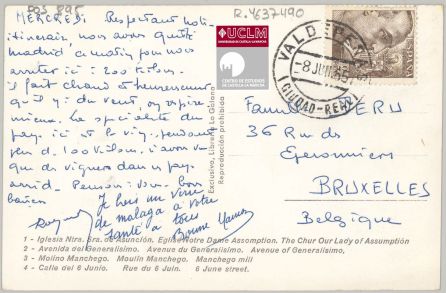 POS 895
R. 4637490
MERCREDI. Respectant notre
itinéraire nous avons quitté
madrid ce matin pour nous
arrêter ici à 200 kilom.
Il fait chaud et heureusement
qu'il y a du vent, on respire
mieux. La spécialité du
pays ici est le vin, pendant
plus d. 100 kilom. n'avons vu
que des vignes dans un pays
aride. Pensons à vous. Bons
baisers
Je bois un verre
de malaga à votre
santé à tous
Bonne Maman
UCLM
UNIVERSIDAD DE CASTILLA-LA MANCHA
CENTRO DE ESTUDIOS
DE CASTILLA-LA MANCHA
VALDEPEÑAS
-8 JUN
(CIUDAD-REAL)
Exclusivo, Librería La Gitana
Reproducción prohibida
Famille PERU
36 Rue des
Eperonniers
BRUXELLES
Belgique
1 - Iglesia Ntra. Sra. de Asunción. Eglise Notre Dame Assomption. The Chur Our Lady of Assumptión
2 - Avenida del Generalísimo. Avenue du Generalísimo. Avenue of Generalísimo,
3 - Molino Manchego. Moulin Manchego. Manchego mill
4 - Calle del 6 Junio. Rue du 6 Juin. 6 June street.